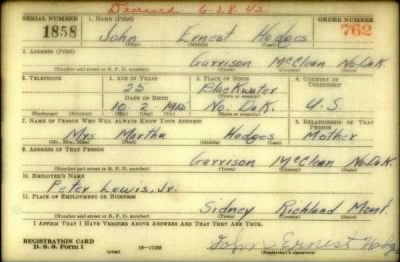 Deceased 6-28-42
SERIAL NUMBER 1. NAME (Print) ORDER NUMBER
1858 John Ernest Hodges 762
(First) (Middle) (Last)
2. ADDRESS (Print)
Garrison McClean No. Dak
(Number and street or R. F. D. number) (Town) (County) (State)
3. TELEPHONE 4. AGE IN YEARS 5. PLACE OF BIRTH 6. COUNTRY OF CITIZENSHIP
25 Blackwater
DATE OF BIRTH (Town or county)
10 2 1915 No. Dak. U.S
(Exchange) (Number) (Mo.) (Day) (Yr.) (State or country)
7. NAME OF PERSON WHO WILL ALWAYS KNOW YOUR ADDRESS 8. RELATIONSHIP OF THAT PERSON
Mrs Martha Hodges Mother
(Mr., Mrs., Miss) (First) (Middle) (Last)
9. ADDRESS OF THAT PERSON
Garrison McClean No Dak
(Number and street or R. F. D. number) (Town) (County) (State)
10. EMPLOYER'S NAME
Peter Lewis, Jr.
11. PLACE OF EMPLOYMENT OR BUSINESS
Sidney Richland Mont.
(Number and street or R. F. D. number) (Town) (County) (State)
I AFFIRM THAT I HAVE VERIFIED ABOVE ANSWERS AND THAT THEY ARE TRUE.
REGISTRATION CARD
D. S. S. Form 1 (over) 16—17105 John Ernest
(Registrant's signature)